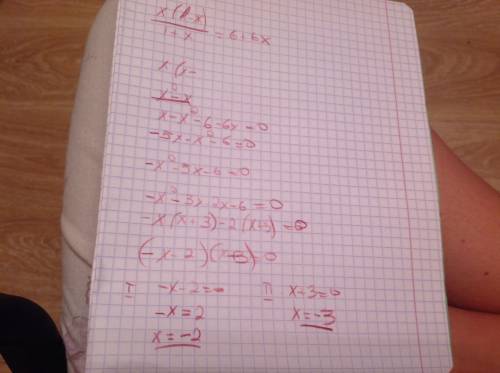 x(1-x)
1+x = 6+6x
x(x-
x²-x
x-x²-6-6x=0
-5x-x²-6=0
-x²-5x-6=0
-x²-3x-2x-6=0
-x(x+3)-2(x+3)=0
(-x-2)(x+3)=0
I -x-2=0 II x+3=0
-x=2 x=-3
x=-2